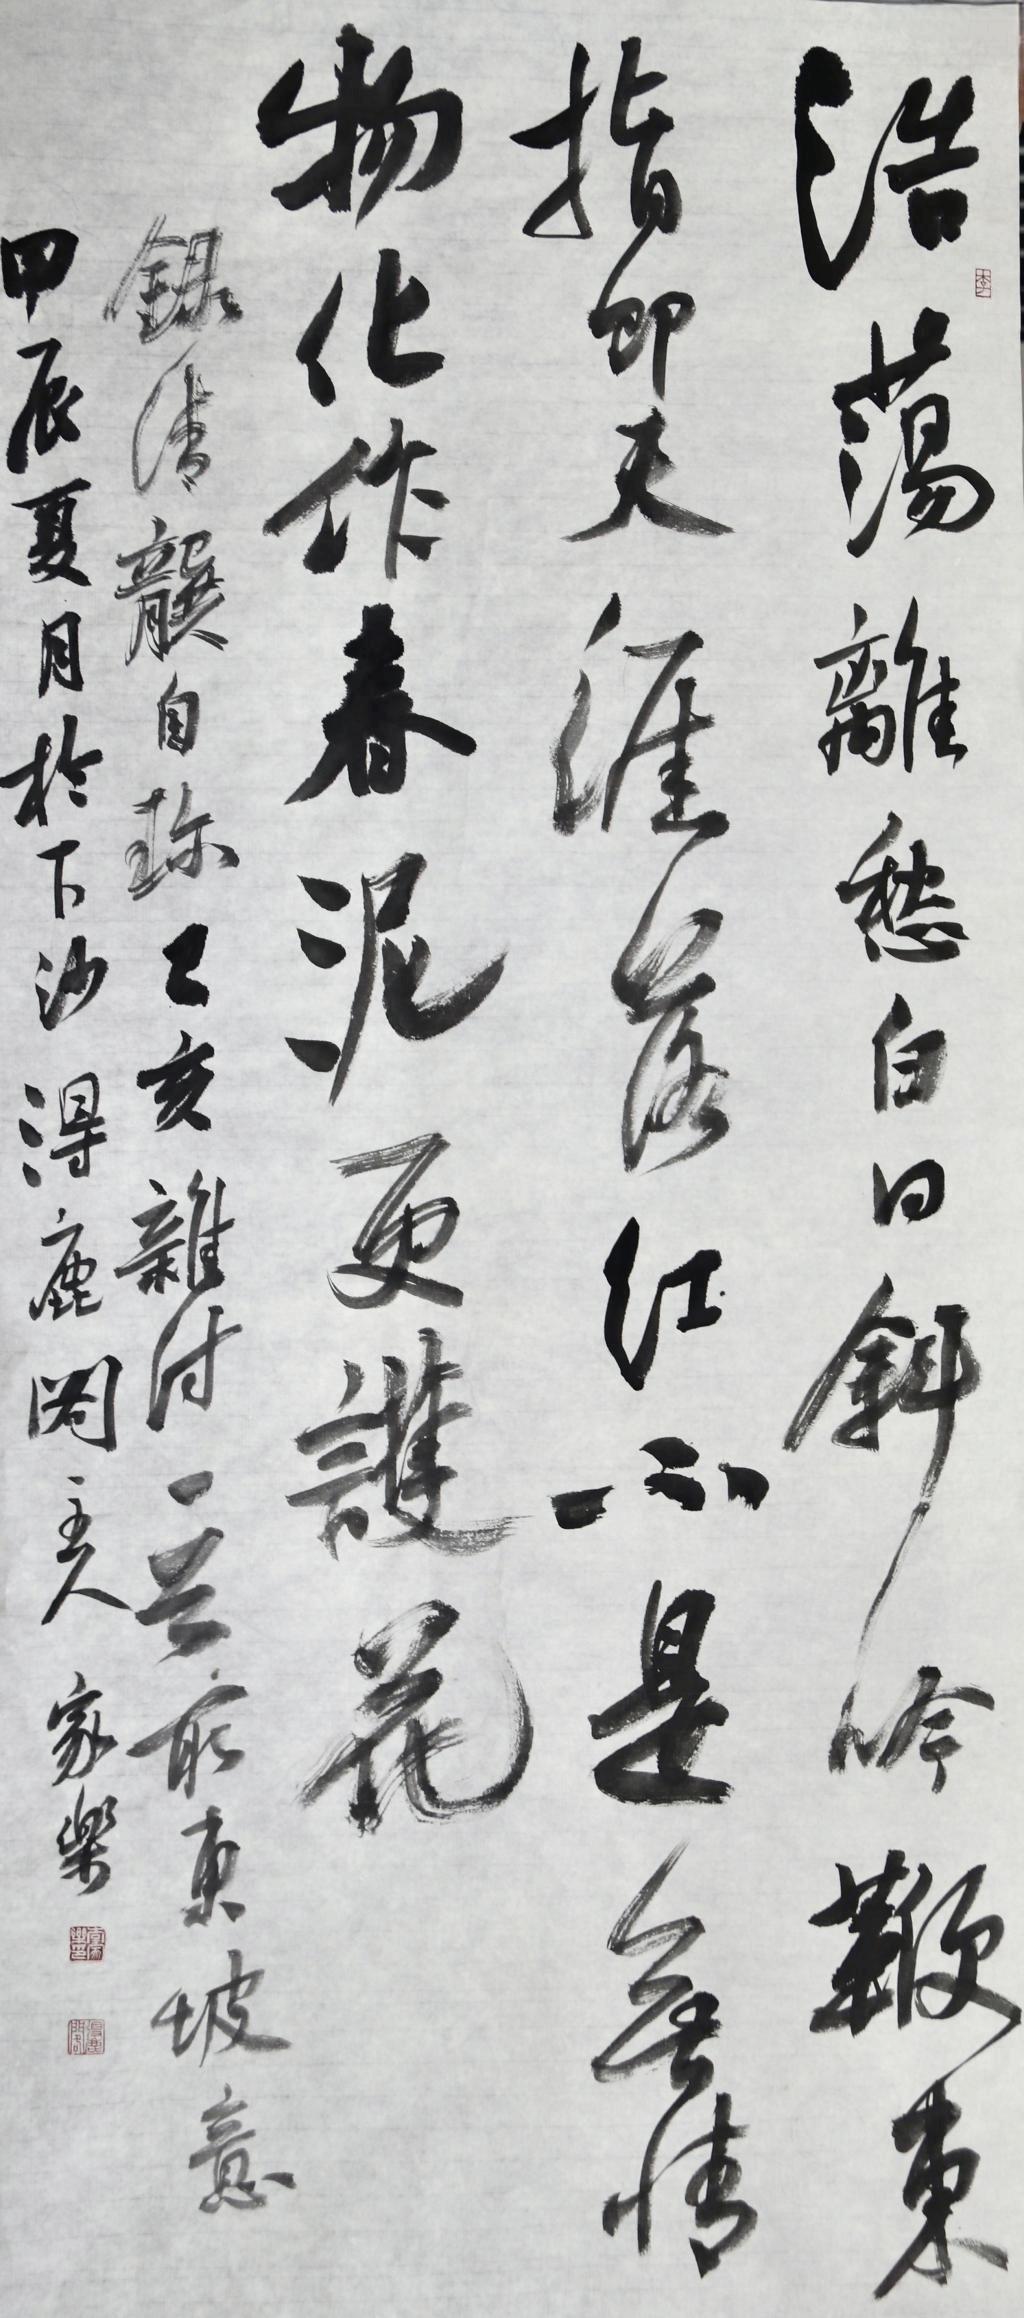 浩蕩離愁白日斜吟鞭東
指即天涯落红不是無情
物化作春泥更護花
錄清龔自珍己亥雜诗一首 東坡意
甲辰夏月於下沙得鹿閣主人家樂
李